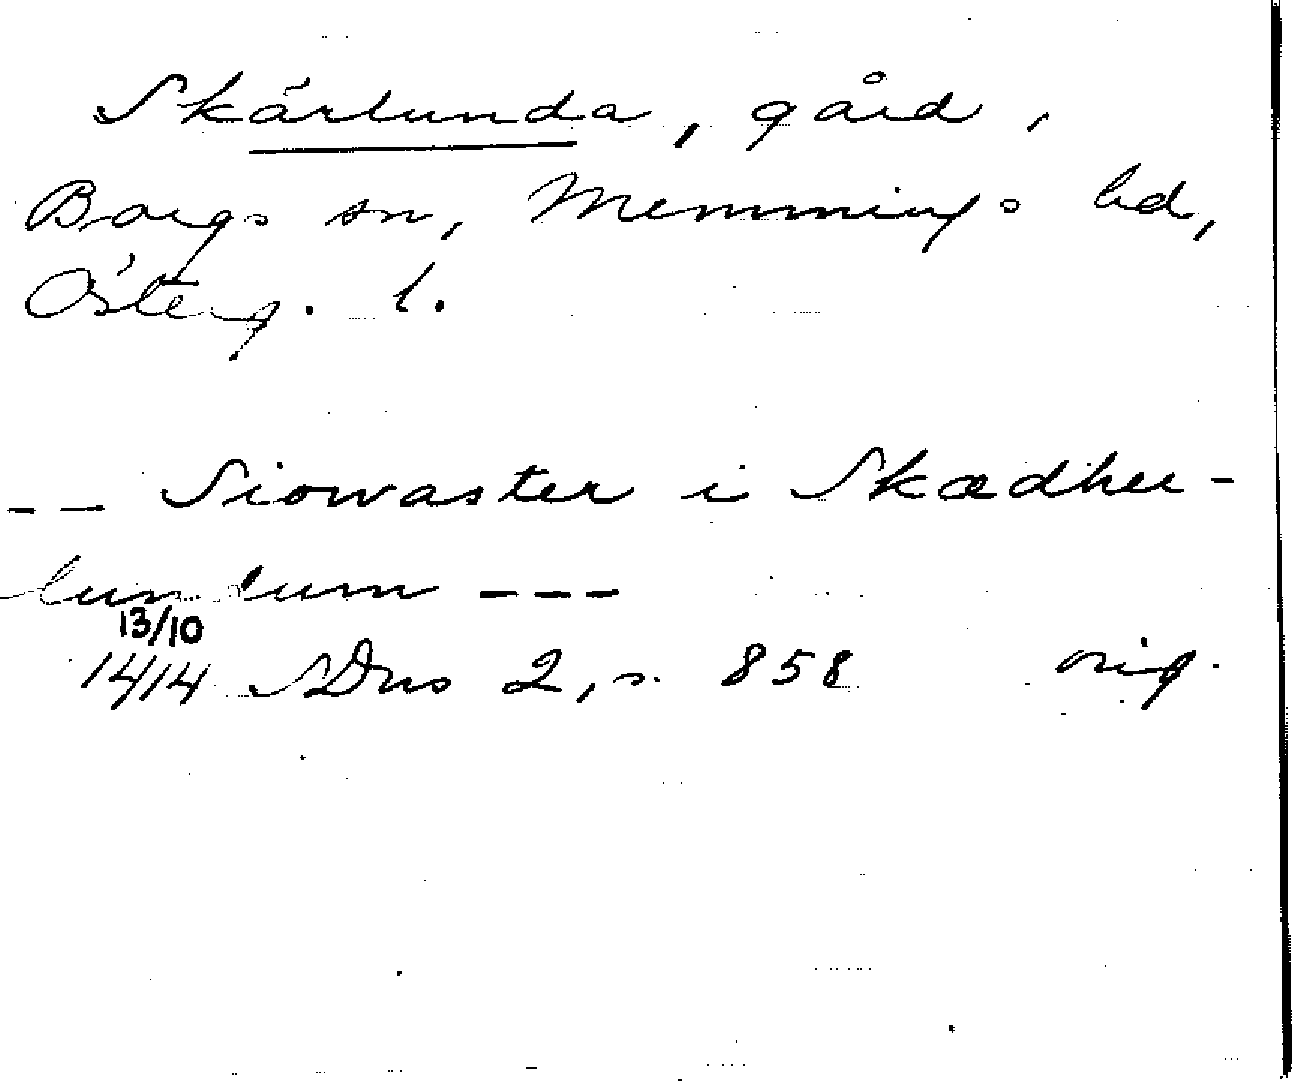 Skärlunda, gård,
Borgs sn, Memmings hd,
Österg. l.
-- Siowaster i Skædher-
lundum ---
13/10
1414 SDns 2, s. 858 orig.